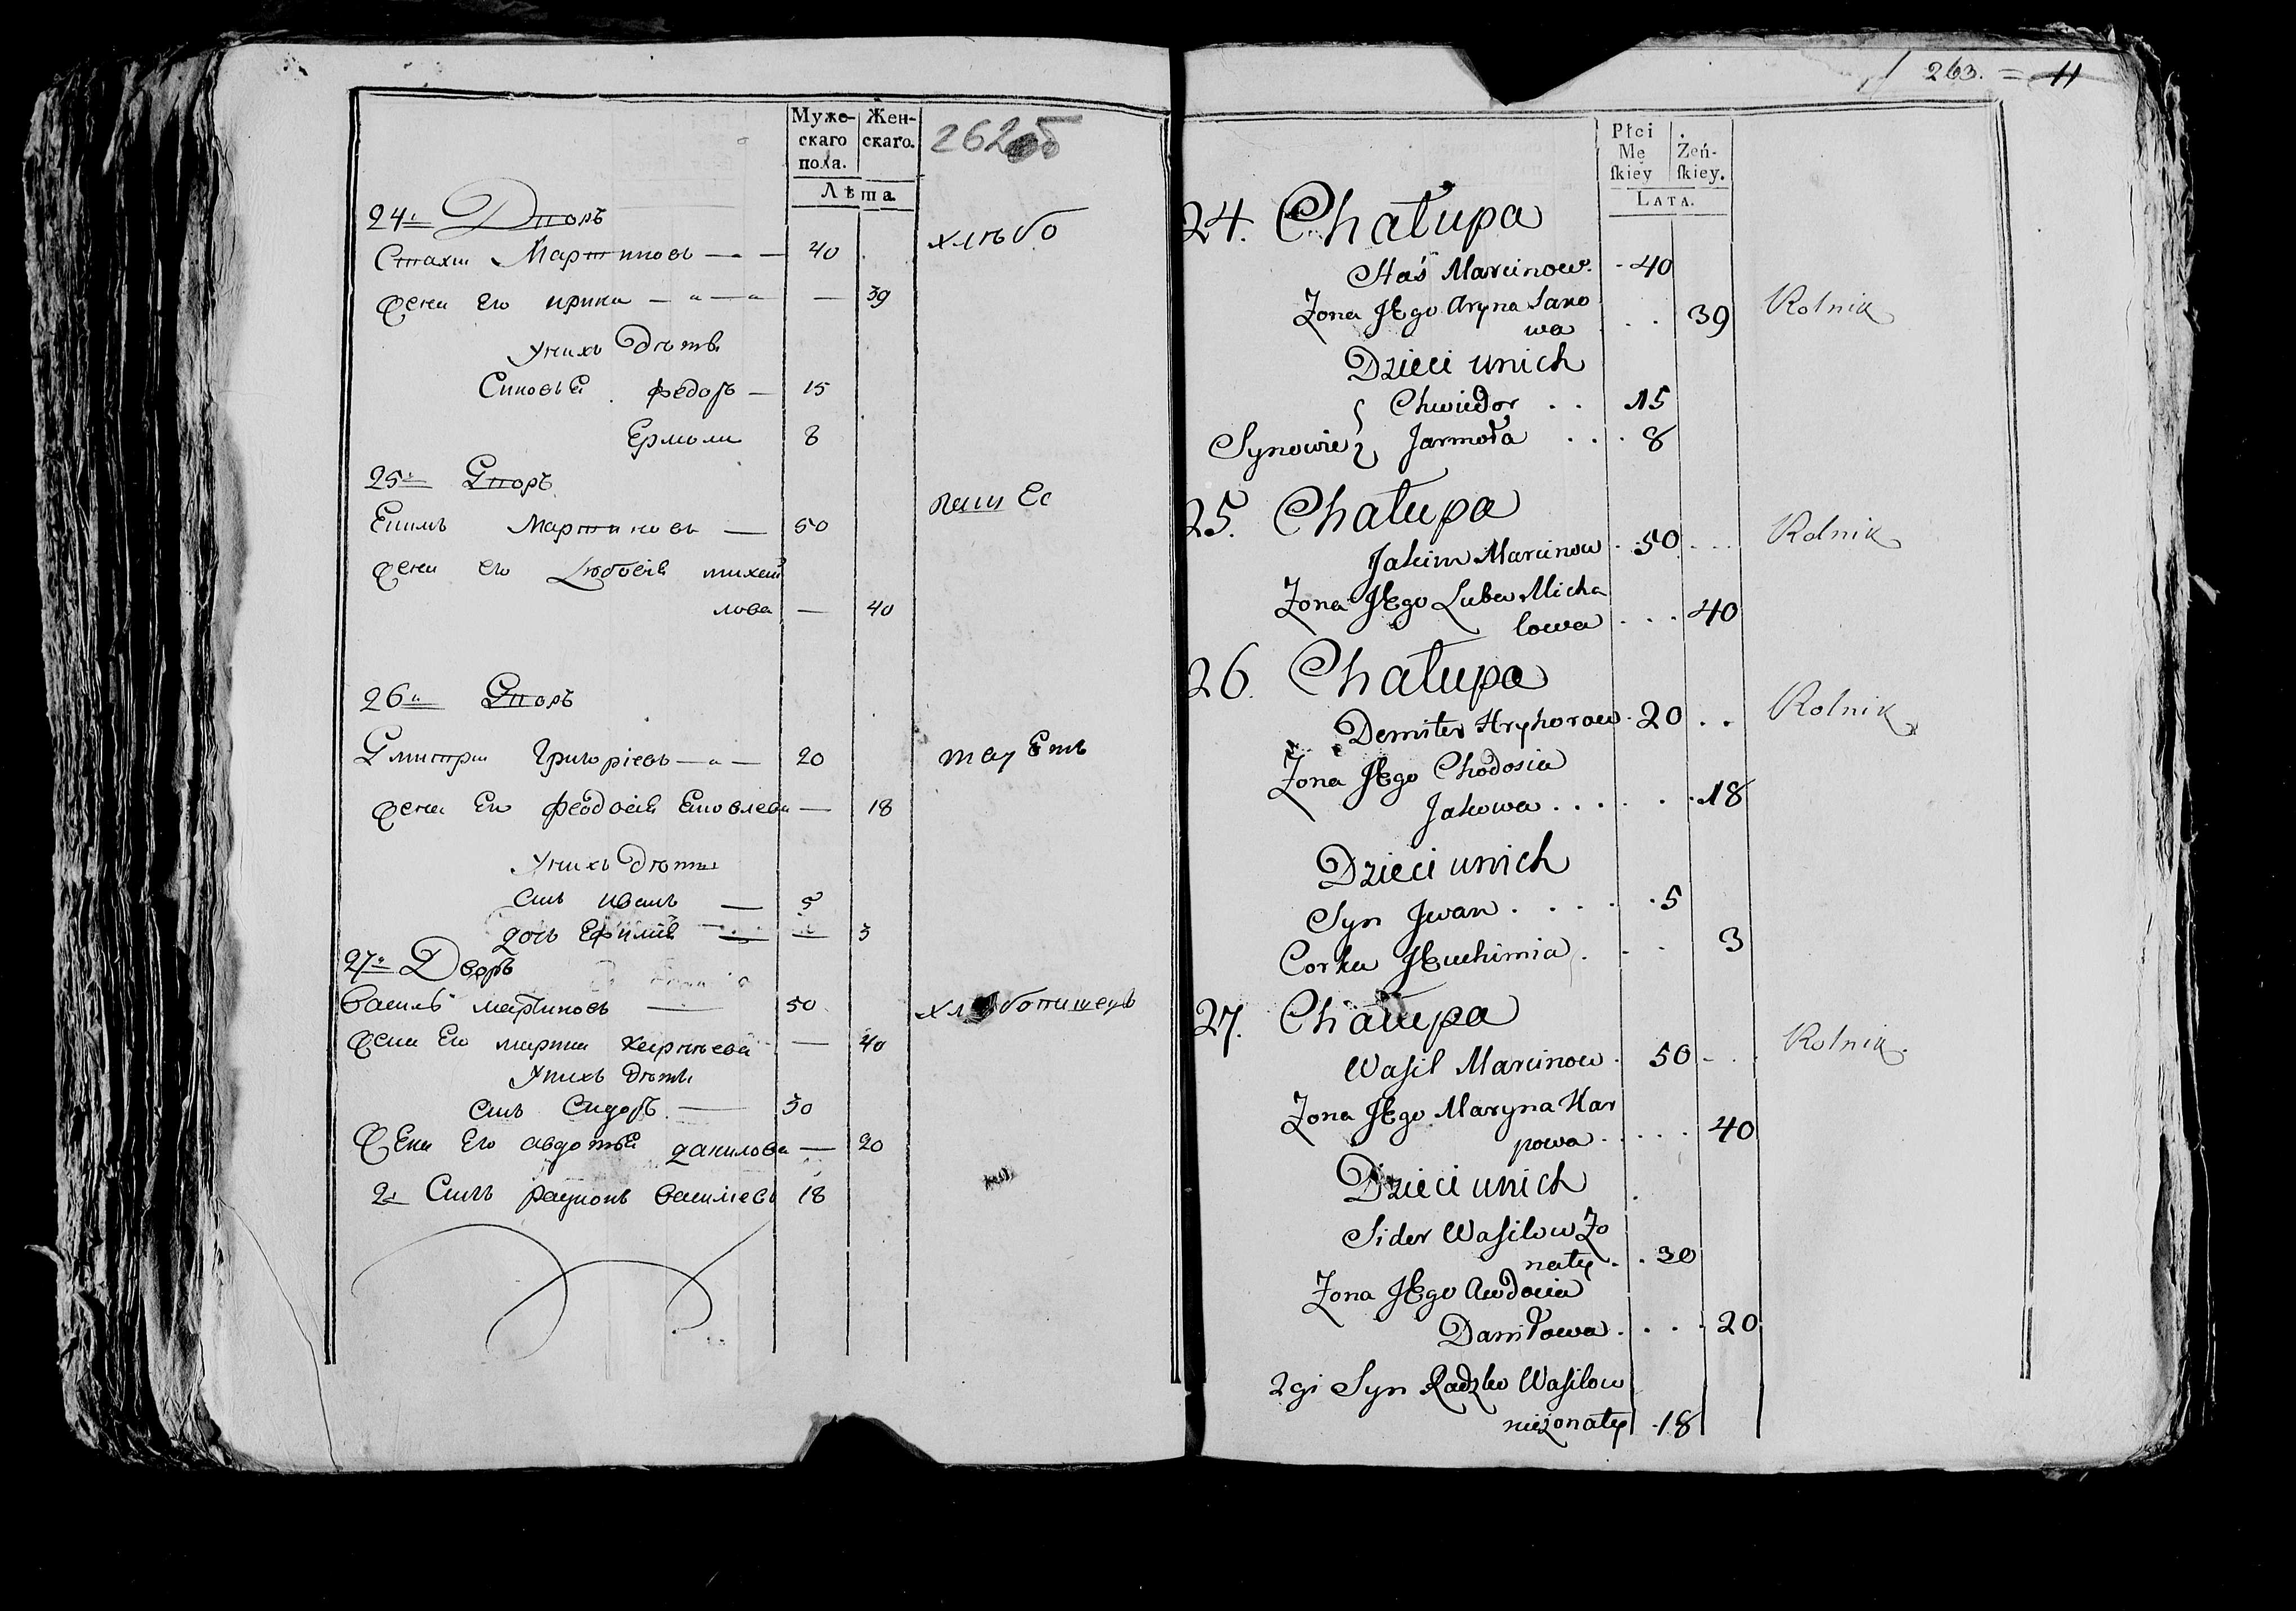 Муже- Жен-
скаго скаго.
пола.
Лѣта.
262об
24й Дворъ
Стахи Мартиновъ — 40 хлѣбо
жена его ирина — 39
Унихъ дѣти
Синовья федоръ — 15
Ермоли 8
25й Дворъ
паш Ес
Екимъ Мартиновъ — 50
жена его Любовія михай
лова — 40
26й Дворъ
Дмитри Григоріевъ — 20
жена Его феодосія Ековлева — 18
Унихъ дѣти
синъ иванъ — 5
дочь Ефимія — 3
27й Дворъ
Василь мартиновъ — 50 хлѣбопашецъ
жена Его марина Карпѣева — 40
Унихъ дѣти
синъ Сидоръ — 30
жена Его авдотья данилова — 20
2й Синъ радионъ василиевъ 18
263. = 11
Płci
Mę Żeń-
ſkiey ſkiey.
LATA.
24. Chałupa
Staś Marcinow. - 40
Zona JEgo Aryna Sano
wa . . . 39 Rolnik
Dzieci unich
Chwiedor . . 15
Synowie Jarmoła . . . 8
25. Chałupa
Jakim Marcinow . 50 . . . Rolnik
Zona JEgo Luba Micha
lowa . . . 40
26. Chałupa
Demiter Hryhorow . 20 . . Rolnik
Zona JEgo Chodosia
Jakowa . . . . . . 18
Dzieci unich
Syn Jwan . . . . . 5
Corka JEuchimia . . . 3
27. Chałupa
Wasil Marcinow . 50 - . Rolnik.
Zona JEgo Maryna Kar
powa . . . . . 40
Dzieci unich
Sider Wasilow Zo
naty . . 30
Zona JEgo Awdocia
Daniłowa . . . . 20
2gi Syn Radzko Wasilow
nieżonaty . 18